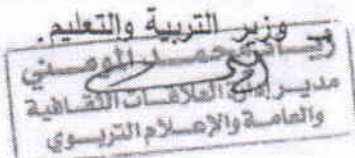 وزير التربية والتعليم
مدير إدارة العلاقات الثقافية
والعامة والإعلام التربوي